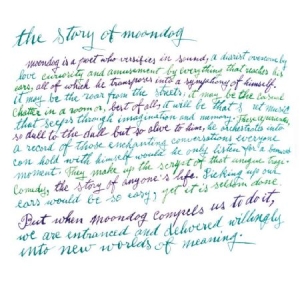 the story of moondog
moondog is a poet who versifies in sound, a diarist overcome by
love curiosity and amusement by everything that reaches his
ears, all of which he transposes into a symphony of himself.
it may be the roar from the streets, it may be the casual
chatter in a room or, best of all, it will be that secret music
that seeps through imagination and memory. These moments,
so dull to the dull but so alive to him, he orchestrates into
a record of those enchanting conversations everyone
can hold with himself would he only listen for a
moment. They make up the script of that unique tragi-
comedy, the story of anyone's life. Picking up our
ears would be so easy, yet it is seldom done.
But when moondog compels us to do it,
we are entranced and delivered willingly
into new worlds of meaning.